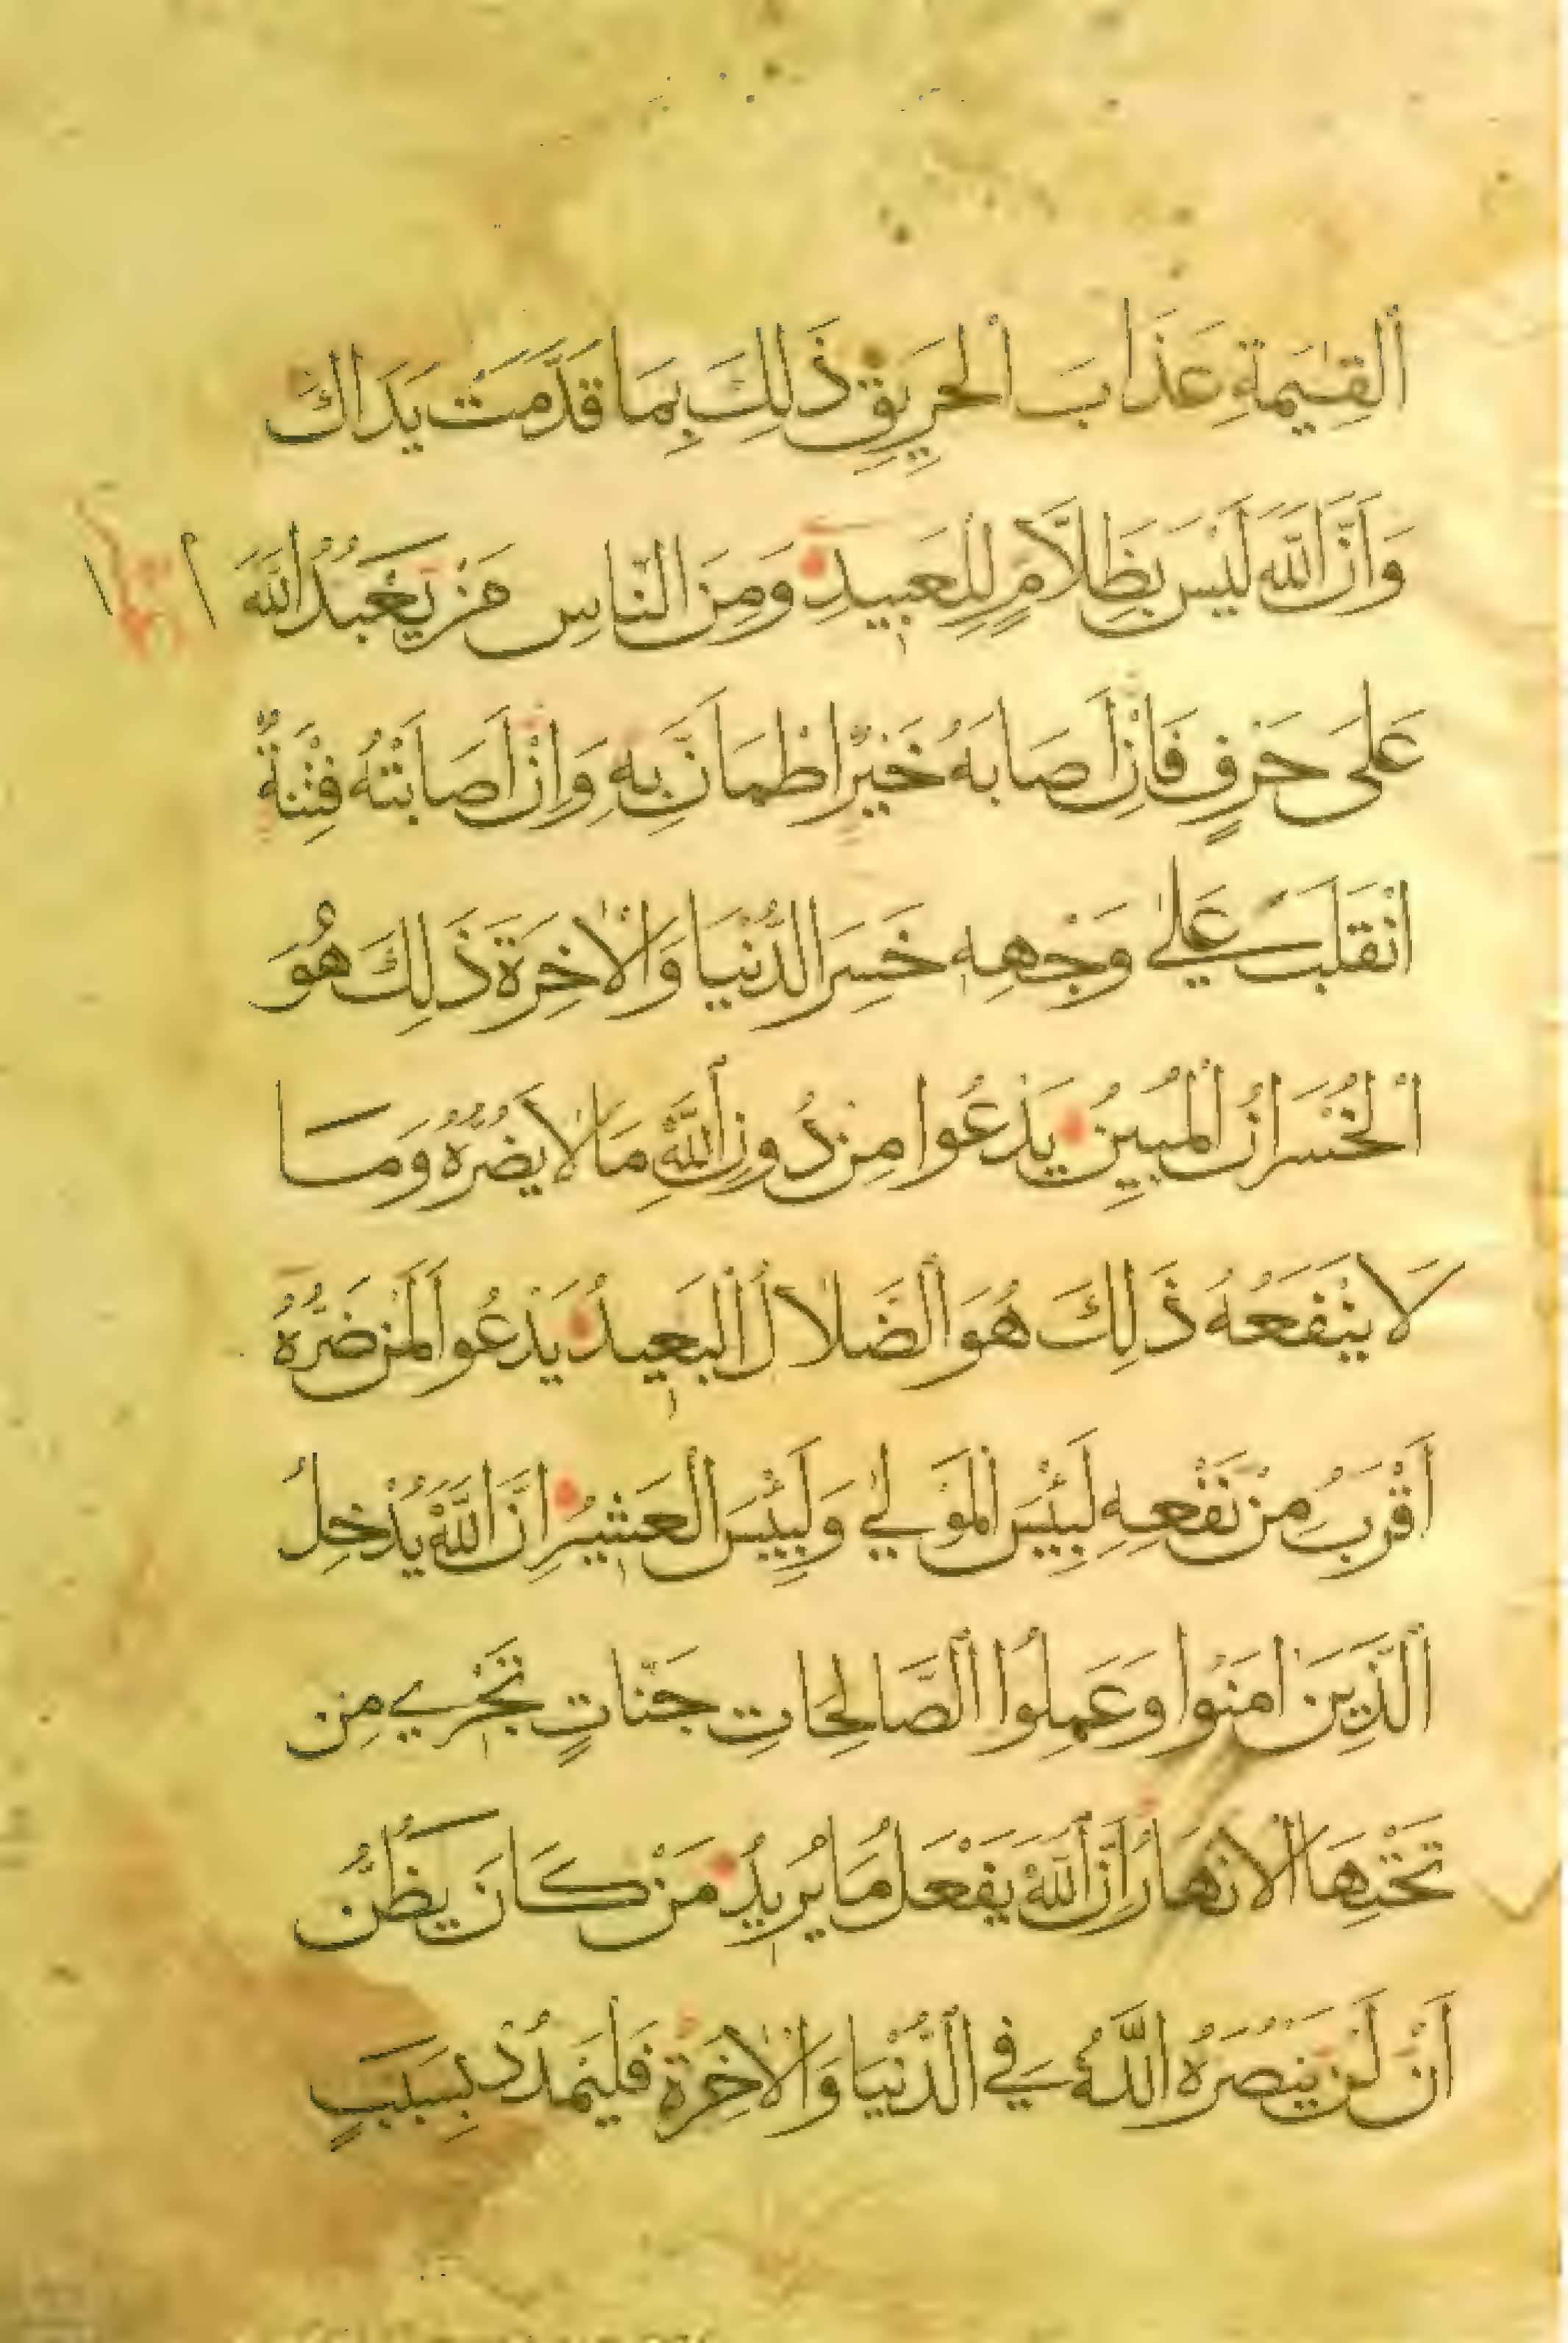 اَلْقِيٰمَةِ عَذَابَ الْحَرِيقِ ذَلِكَ بِمَا قَدَّمَتْ يَدَاكَ
وَاَنَّ اللّٰهَ لَيْسَ بِظَلَّامٍ لِلْعَبِيدِ وَمِنَ النَّاسِ مَنْ يَعْبُدُ اللّٰهَ
عَلَى حَرْفٍ فَاِنْ اَصَابَهُ خَيْرٌ اطْمَاَنَّ بِهِ وَاِنْ اَصَابَتْهُ فِتْنَةٌ
انْقَلَبَ عَلٰي وَجْهِهِ خَسِرَ الدُّنْيَا وَالْاٰخِرَةَ ذَلِكَ هُوَ
الْخُسْرَانُ الْمُبِينُ يَدْعُوا مِنْ دُونِ اللّٰهِ مَا لَا يَضُرُّهُ وَمَا
لَا يَنْفَعُهُ ذَلِكَ هُوَ الضَّلَالُ الْبَعِيدُ يَدْعُوا لَمَنْ ضَرُّهُ
اَقْرَبُ مِنْ نَفْعِهِ لَبِئْسَ الْمَوْلٰي وَلَبِئْسَ الْعَشِيرُ اِنَّ اللّٰهَ يُدْخِلُ
الَّذِينَ اٰمَنُوا وَعَمِلُوا الصَّالِحَاتِ جَنَّاتٍ تَجْرِي مِن
تَحْتِهَا الْاَنْهَارُ اِنَّ اللّٰهَ يَفْعَلُ مَا يُرِيدُ مَنْ كَانَ يَظُنُّ
اَنْ لَنْ يَنْصُرَهُ اللّٰهُ فِي الدُّنْيَا وَالْاٰخِرَةِ فَلْيَمْدُدْ بِسَبَبٍ